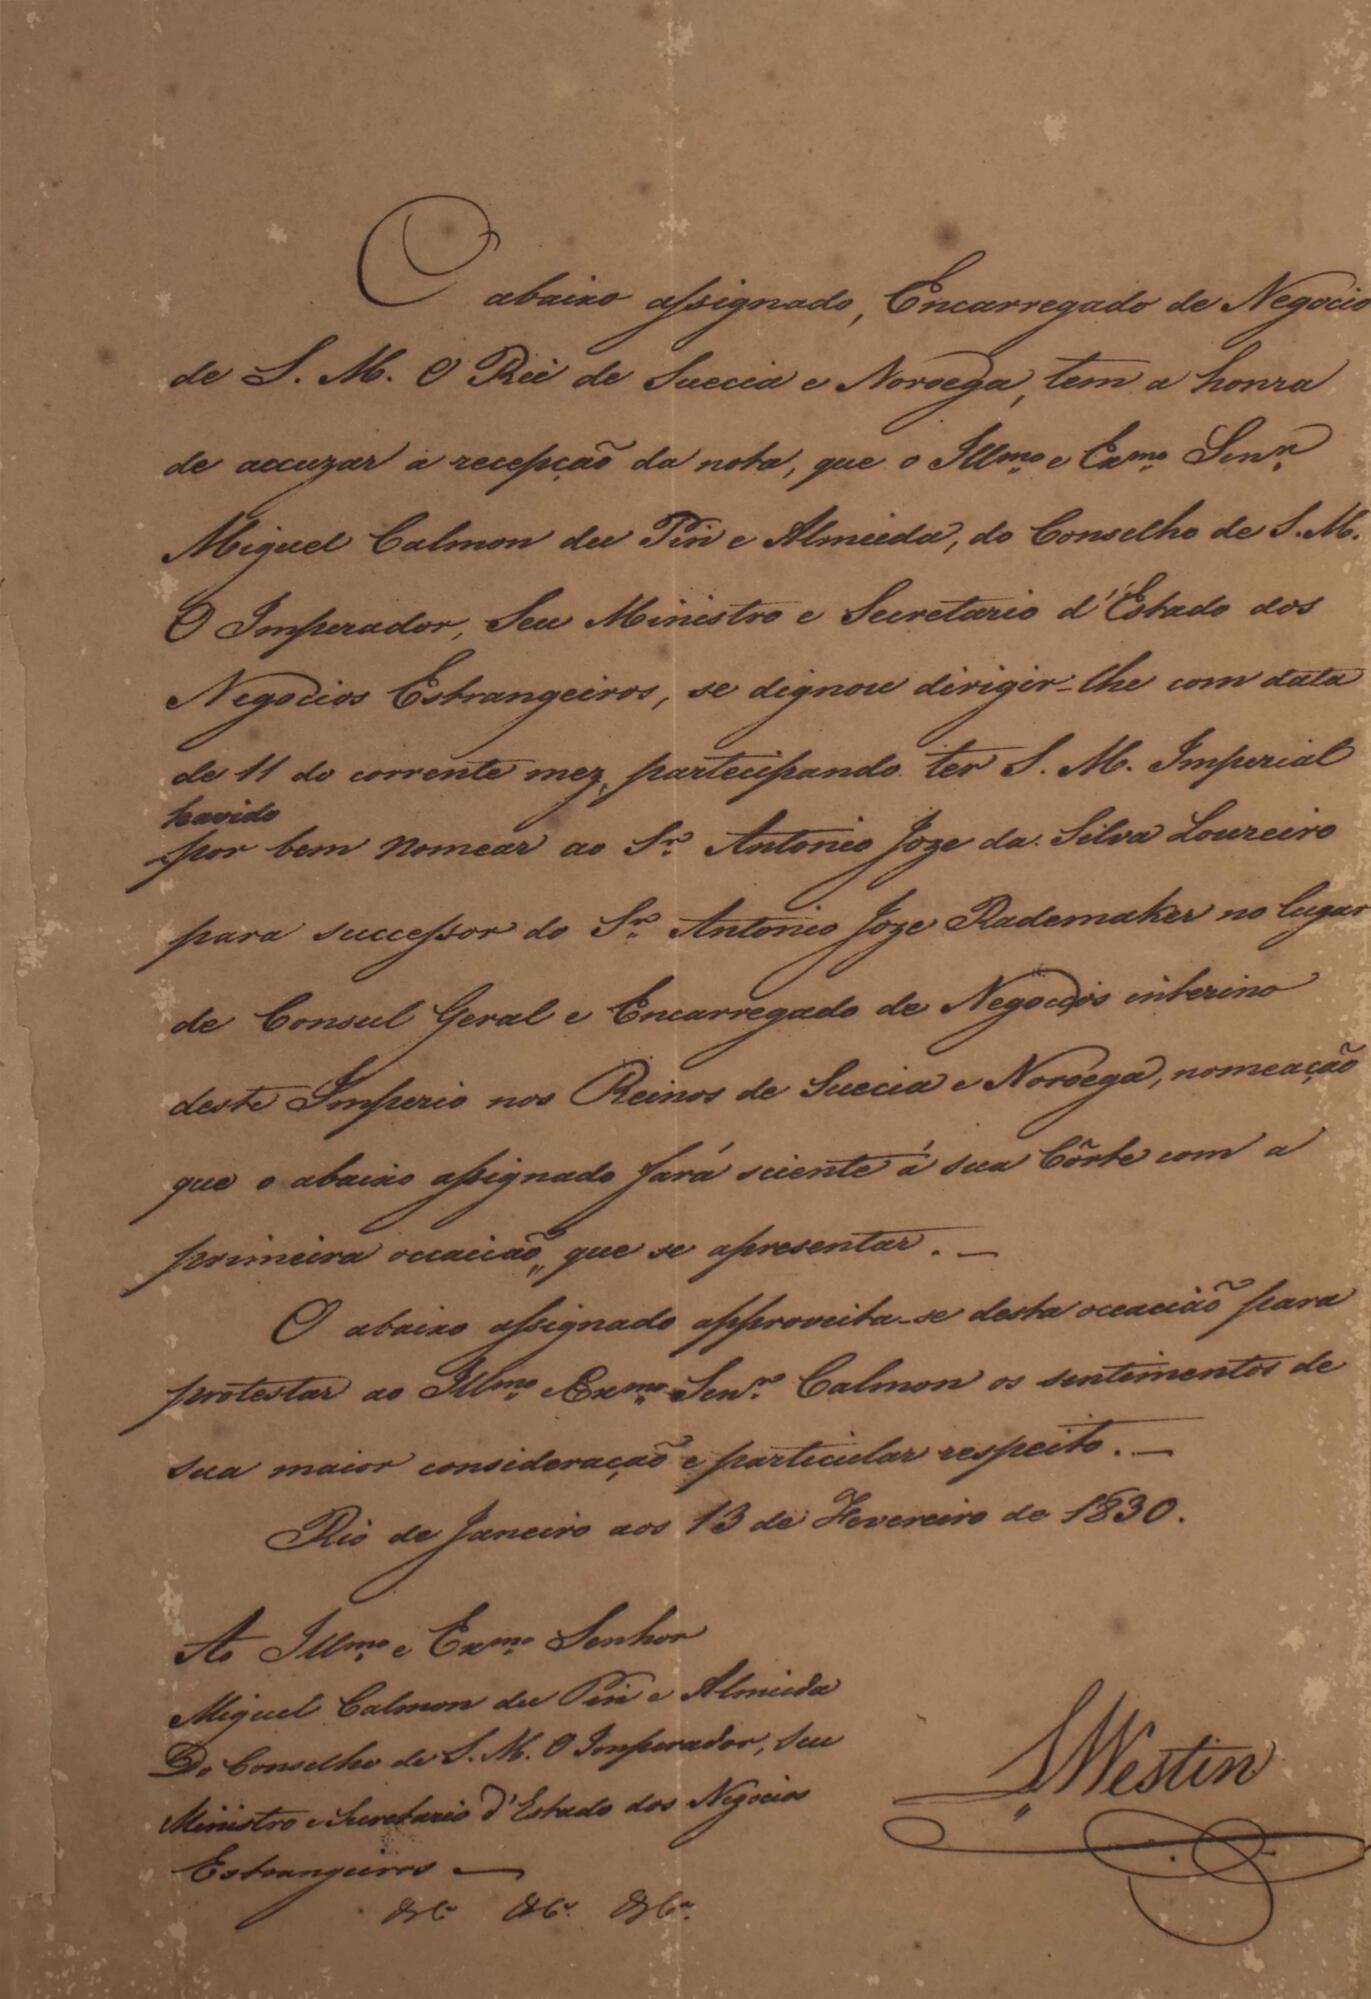 O abaixo assignado, Encarregado de Negocio
de S. M. O Rei de Suecia e Noroega, tem a honra
de accuzar a recepção da nota, que o Illmo. e Exmo. Senr.
Miguel Calmon du Pin e Almeida, do Conselho de S. M.
O Imperador, Seu Ministro e Secretario d'Estado dos
Negocios Estrangeiros, se dignou dirigir-lhe com data
de 11 do corrente mez, partecipando ter S. M. Imperial
havido
por bem nomear ao Sr. Antonio Joze da Silva Loureiro
para successor do Sr. Antonio Joze Rademaker no lugar
de Consul Geral e Encarregado de Negocios interino
deste Imperio nos Reinos de Suecia e Noroega, nomeação
que o abaixo assignado fará sciente á sua Côrte com a
primeira occacião, que se apresentar. —
O abaixo assignado approveita-se desta occacião para
protestar ao Illmo. Exmo. Senr. Calmon os sentimentos de
sua maior consideração e particular respeito. —
Rio de Janeiro aos 13 de Fevereiro de 1830.
Ao Illmo. e Exmo. Senhor
Miguel Calmon du Pin e Almeida
Do Conselho de S. M. O Imperador, Seu
Ministro e Secretario d'Estado dos Negocios
Estrangeiros —
&c. &c. &c.
L Westin